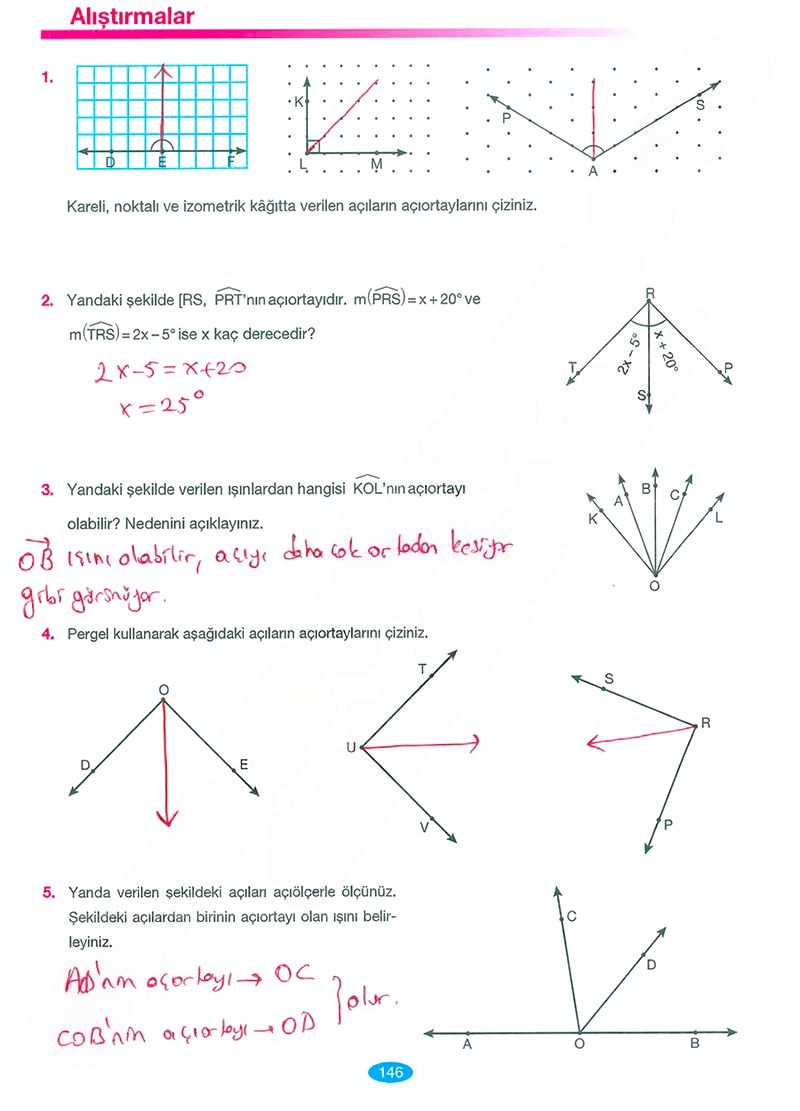 Alıştırmalar
1.
D E F
K
L M
P S
A
Kareli, noktalı ve izometrik kâğıtta verilen açıların açıortaylarını çiziniz.
2. Yandaki şekilde [RS, PRT'nın açıortayıdır. m(PRS) = x + 20° ve
m(TRS) = 2x – 5° ise x kaç derecedir?
2x-5 = x+20
x = 25°
R
T 2x – 5° x + 20° P
S
3. Yandaki şekilde verilen ışınlardan hangisi KOL'nın açıortayı
olabilir? Nedenini açıklayınız.
OB ışını olabilir, açıyı daha çok ortadan kesiyor
gibi görünüyor.
K A B C L
O
4. Pergel kullanarak aşağıdaki açıların açıortaylarını çiziniz.
O
D E
T
U
V
S
R
P
5. Yanda verilen şekildeki açıları açıölçerle ölçünüz.
Şekildeki açılardan birinin açıortayı olan ışını belir-
leyiniz.
açıortayı → OC
COB'nin açıortayı → OD } olur.
C
D
A O B
146